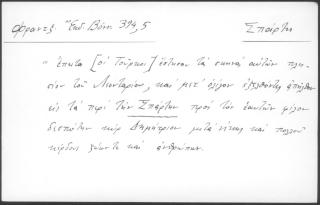 Φραντζ. Ἔκδ. Βόνν. 394,5 Σπάρτη
"Ἔπειτα [οἱ Τοῦρκοι] ἔστησαν τὰ σκηνὰς αὐτῶν πλη-
σίον τοῦ Λεονταρίου, καὶ μετ' ὀλίγον ἐξελθόντες ἀπῆλθον
εἰς τὰ περὶ τὴν Σπάρτην πρὸς τὸν ἑαυτῶν φίλον
δεσπότην κὺρ Δημήτριον μετὰ νίκης καὶ πολλοῦ
κέρδους ζώων τε καὶ ἀνθρώπων.